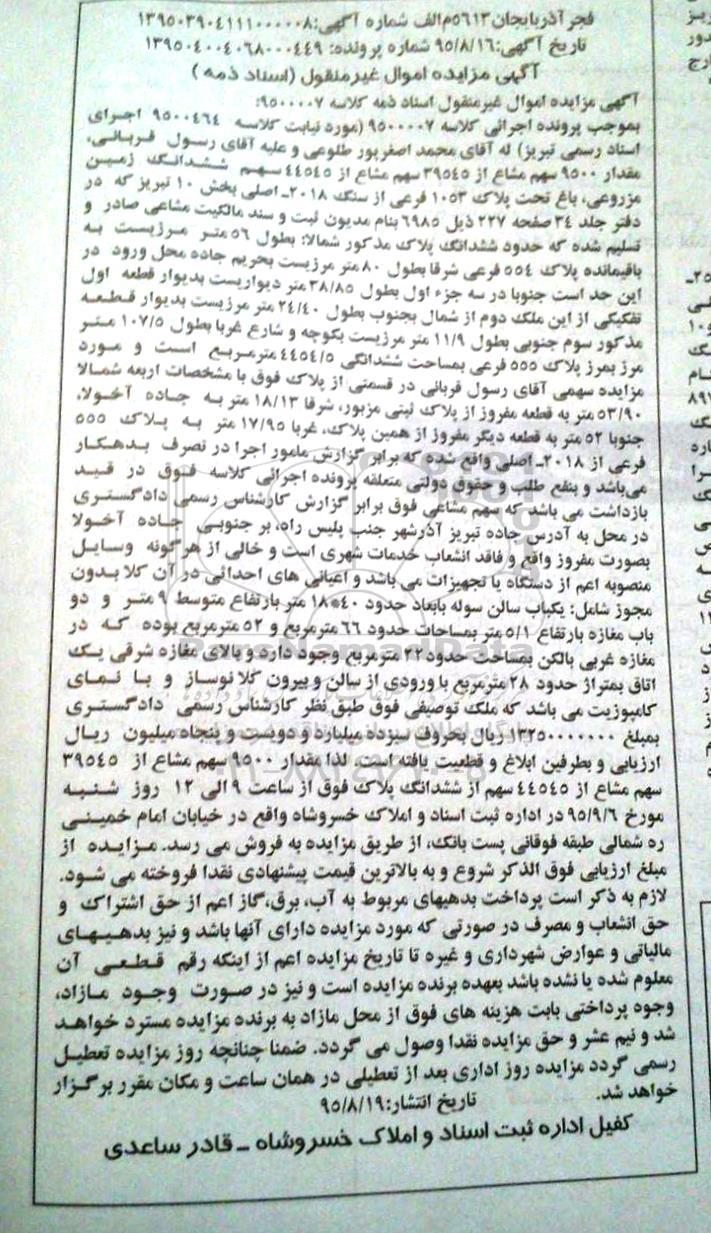 فجر آذربایجان ۵۶۱۳م‌الف شماره آگهی: ۱۳۹۵۰۳۹۰۴۱۱۱۰۰۰۰۰۸
تاریخ آگهی: ۹۵/۸/۱۶ شماره پرونده: ۱۳۹۵۰۴۰۰۴۰۶۸۰۰۰۴۴۹
آگهی مزایده اموال غیرمنقول (اسناد ذمه)
آگهی مزایده اموال غیرمنقول اسناد ذمه کلاسه ۹۵۰۰۰۰۷:
بموجب پرونده اجرائی کلاسه ۹۵۰۰۰۰۷ (مورد نیابت کلاسه ۹۵۰۰۴۶۴ اجرای
اسناد رسمی تبریز) له آقای محمد اصغرپور طلوعی و علیه آقای رسول قربانی،
مقدار ۹۵۰۰ سهم مشاع از ۳۹۵۴۵ سهم مشاع از ۴۴۵۴۵ سهم ششدانگ زمین
مزروعی، باغ تحت پلاک ۱۰۵۳ فرعی از سنگ ۲۰۱۸ـ اصلی بخش ۱۰ تبریز که در
دفتر جلد ۳۴ صفحه ۲۲۷ ذیل ۶۹۸۵ بنام مدیون ثبت و سند مالکیت مشاعی صادر و
تسلیم شده که حدود ششدانگ پلاک مذکور شمالا: بطول ۵۶ متر مرزیست به
باقیمانده پلاک ۵۵۴ فرعی شرقا بطول ۸۰ متر مرزیست بحریم جاده محل ورود در
این حد است جنوبا در سه جزء اول بطول ۳۸/۸۵ متر دیواریست بدیوار قطعه اول
تفکیکی از این ملک دوم از شمال بجنوب بطول ۲۴/۴۰ متر مرزیست بدیوار قطعه
مذکور سوم جنوبی بطول ۱۱/۹ متر مرزیست بکوچه و شارع غربا بطول ۱۰۷/۵ متر
مرز بمرز پلاک ۵۵۵ فرعی بمساحت ششدانگی ۴۴۵۴/۵ مترمربع است و مورد
مزایده سهمی آقای رسول قربانی در قسمتی از پلاک فوق با مشخصات اربعه شمالا
۵۳/۹۰ متر به قطعه مفروز از پلاک ثبتی مزبور، شرقا ۱۸/۱۳ متر به جاده آخولا،
جنوبا ۵۲ متر به قطعه دیگر مفروز از همین پلاک، غربا ۱۷/۹۵ متر به پلاک ۵۵۵
فرعی از ۲۰۱۸ـ اصلی واقع شده که برابر گزارش مامور اجرا در تصرف بدهکار
می‌باشد و بنفع طلب و حقوق دولتی متعلقه پرونده اجرائی کلاسه فوق در قید
بازداشت می باشد که سهم مشاعی فوق برابر گزارش کارشناس رسمی دادگستری
در محل به آدرس جاده تبریز آذرشهر جنب پلیس راه، بر جنوبی جاده آخولا
بصورت مفروز واقع و فاقد انشعاب خدمات شهری است و خالی از هرگونه وسایل
منصوبه اعم از دستگاه یا تجهیزات می باشد و اعیانی های احداثی در آن کلا بدون
مجوز شامل: یکباب سالن سوله بابعاد حدود ۴۰*۱۸ متر بارتفاع متوسط ۹ متر و دو
باب مغازه بارتفاع ۵/۱ متر بمساحات حدود ۶۶ مترمربع و ۵۲ مترمربع بوده که در
مغازه غربی بالکن بمساحت حدود ۲۲ مترمربع وجود دارد و بالای مغازه شرقی یک
اتاق بمتراژ حدود ۲۸ مترمربع با ورودی از سالن و بیرون کلا نوساز و با نمای
کامپوزیت می باشد که ملک توصیفی فوق طبق نظر کارشناس رسمی دادگستری
بمبلغ ۱۳۲۵۰۰۰۰۰۰۰ ریال بحروف سیزده میلیارد و دویست و پنجاه میلیون ریال
ارزیابی و بطرفین ابلاغ و قطعیت یافته است. لذا مقدار ۹۵۰۰ سهم مشاع از ۳۹۵۴۵
سهم مشاع از ۴۴۵۴۵ سهم از ششدانگ پلاک فوق از ساعت ۹ الی ۱۲ روز شنبه
مورخ ۹۵/۹/۶ در اداره ثبت اسناد و املاک خسروشاه واقع در خیابان امام خمینی
ره شمالی طبقه فوقانی پست بانک، از طریق مزایده به فروش می رسد. مزایده از
مبلغ ارزیابی فوق الذکر شروع و به بالاترین قیمت پیشنهادی نقدا فروخته می شود.
لازم به ذکر است پرداخت بدهیهای مربوط به آب، برق، گاز اعم از حق اشتراک و
حق انشعاب و مصرف در صورتی که مورد مزایده دارای آنها باشد و نیز بدهیهای
مالیاتی و عوارض شهرداری و غیره تا تاریخ مزایده اعم از اینکه رقم قطعی آن
معلوم شده یا نشده باشد بعهده برنده مزایده است و نیز در صورت وجود مازاد،
وجوه پرداختی بابت هزینه های فوق از محل مازاد به برنده مزایده مسترد خواهد
شد و نیم عشر و حق مزایده نقدا وصول می گردد. ضمنا چنانچه روز مزایده تعطیل
رسمی گردد مزایده روز اداری بعد از تعطیلی در همان ساعت و مکان مقرر برگزار
خواهد شد. تاریخ انتشار: ۹۵/۸/۱۹
کفیل اداره ثبت اسناد و املاک خسروشاه ـ قادر ساعدی